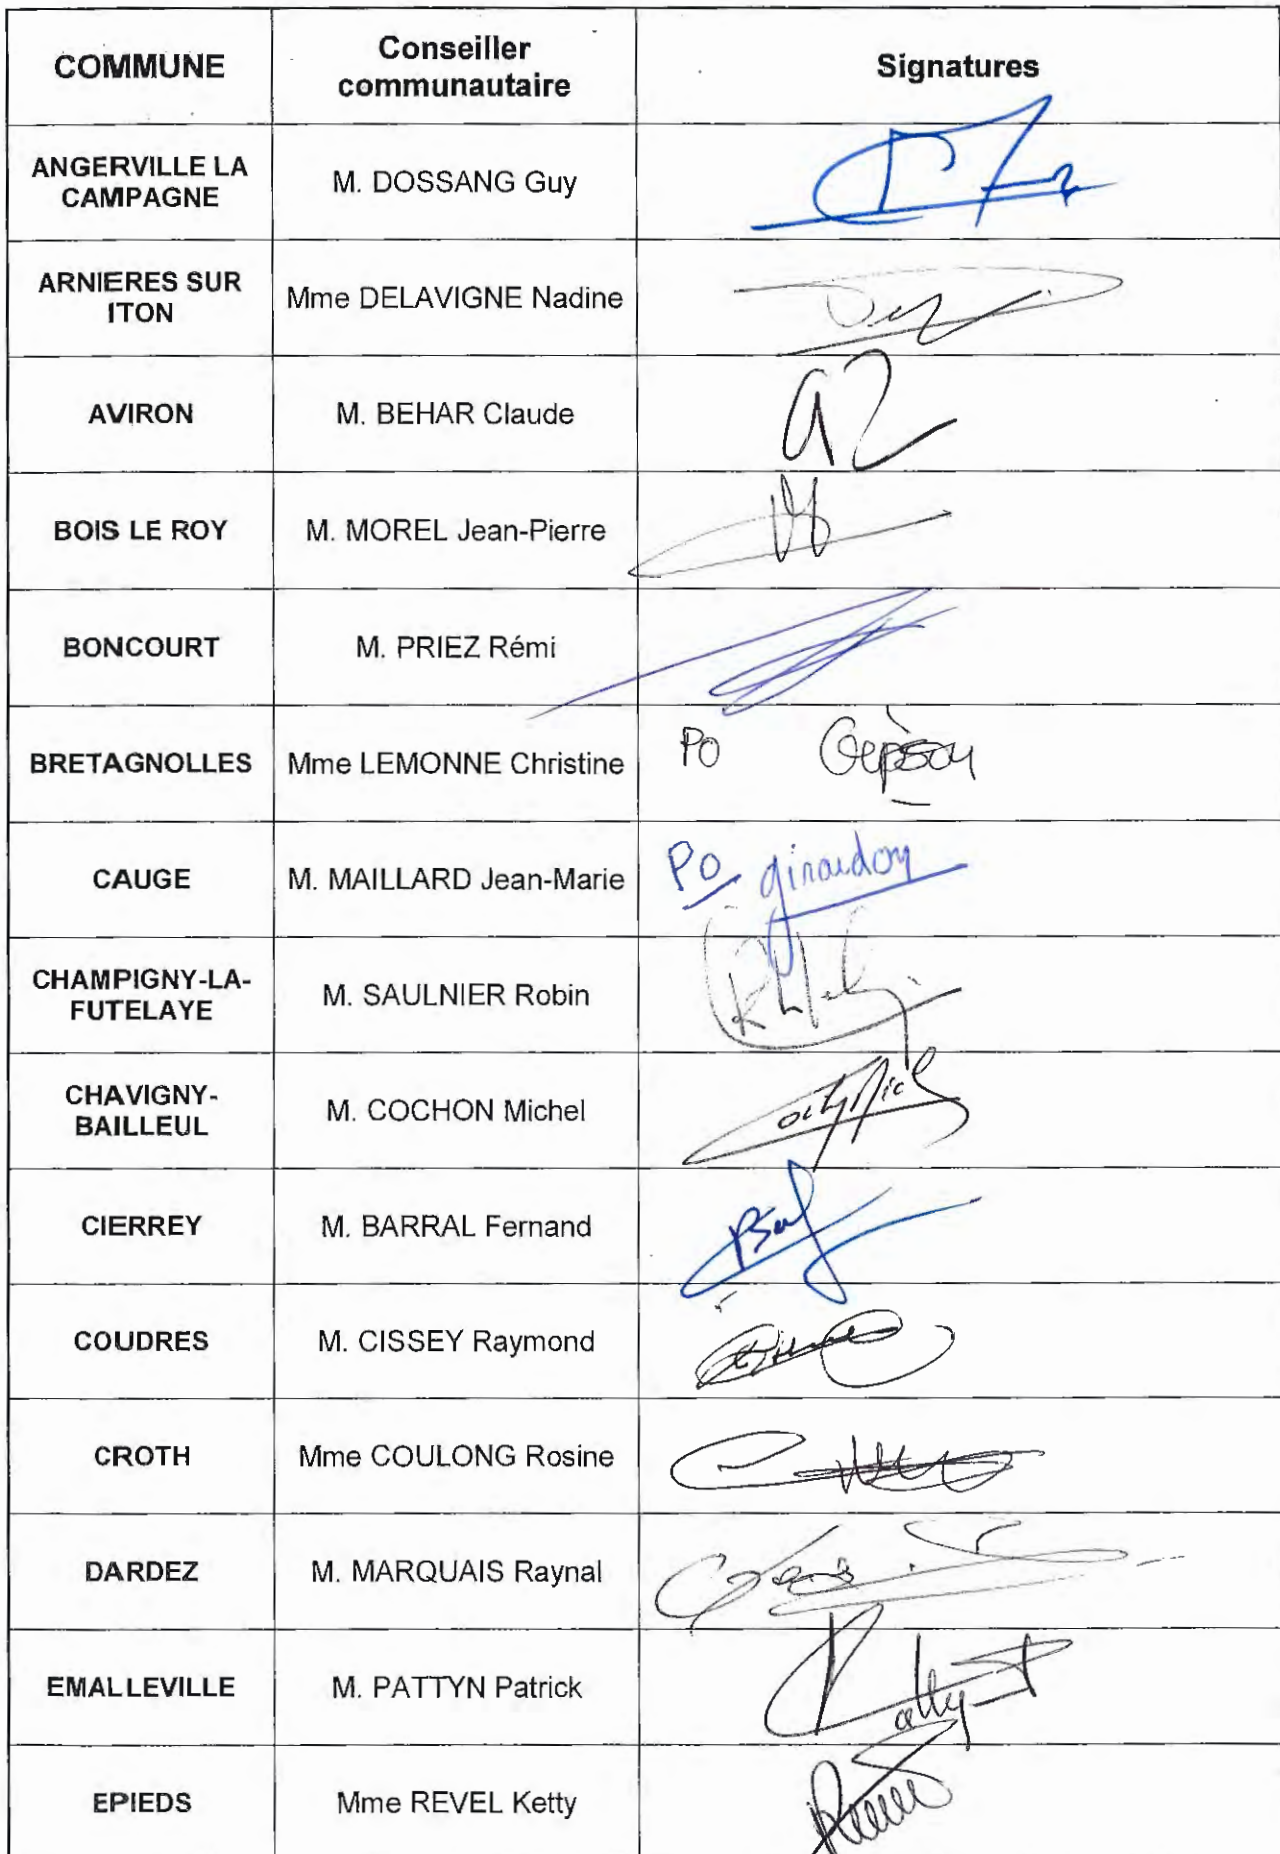 COMMUNE
Conseiller
communautaire
Signatures
ANGERVILLE LA
CAMPAGNE
M. DOSSANG Guy
ARNIERES SUR
ITON
Mme DELAVIGNE Nadine
AVIRON
M. BEHAR Claude
BOIS LE ROY
M. MOREL Jean-Pierre
BONCOURT
M. PRIEZ Rémi
BRETAGNOLLES
Mme LEMONNE Christine
PO
CAUGE
M. MAILLARD Jean-Marie
PO giraudon
CHAMPIGNY-LA-
FUTELAYE
M. SAULNIER Robin
CHAVIGNY-
BAILLEUL
M. COCHON Michel
CIERREY
M. BARRAL Fernand
COUDRES
M. CISSEY Raymond
CROTH
Mme COULONG Rosine
DARDEZ
M. MARQUAIS Raynal
EMALLEVILLE
M. PATTYN Patrick
EPIEDS
Mme REVEL Ketty